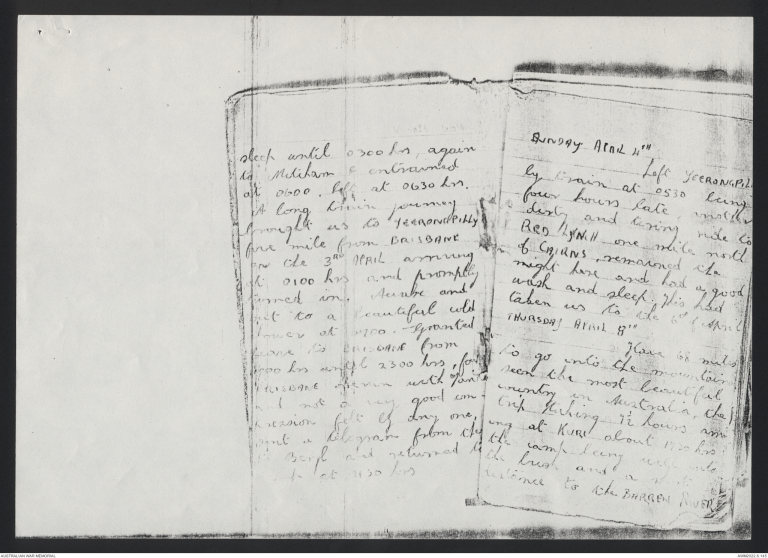 sleep until 0300 hrs, again
to Mitcham & entrained
at 0600. left at 0630 hrs.
A long train journey
brought us to YEERONGPILLY
five mile from BRISBANE
on the 3RD APRIL arriving
at 0100 hrs and promptly
turned in. Awake and
out to a beautiful cold
shower at 0700. Granted
leave to BRISBANE from
until 2300 hrs, for
BRISBANE with
and not a very good im
pression felt by any one,
sent a telegram from the
and returned to
at 2130 hrs
SUNDAY APRIL 4TH
Left YEERONGPILL
by train at 0530 being
four hours late, another
dirty and tiring ride to
RED LYNCH one mile north
of CAIRNS, remained the
night here and had a good
wash and sleep. This had
taken us to the 6th April
THURSDAY APRIL 8TH
Have 68 miles
to go into the mountain
seen the most beautiful
country in Australia, the
trip taking 4½ hours arri
ing at KURI about 1730 hrs
the camp being
the bush and a
distance to the BARREN RIVER
AUSTRALIAN WAR MEMORIAL